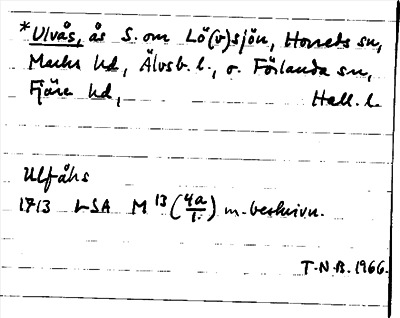 *Ulvås, ås S. om Lö(v)sjön, Horreds sn,
Marks hd, Älvsb. l., o. Förlanda sn,
Fjäre hd, Hall. l.
Ulfåhs
1713 LSA M 13 (4a/1.) m. beskrivn.
T.N.B. 1966.